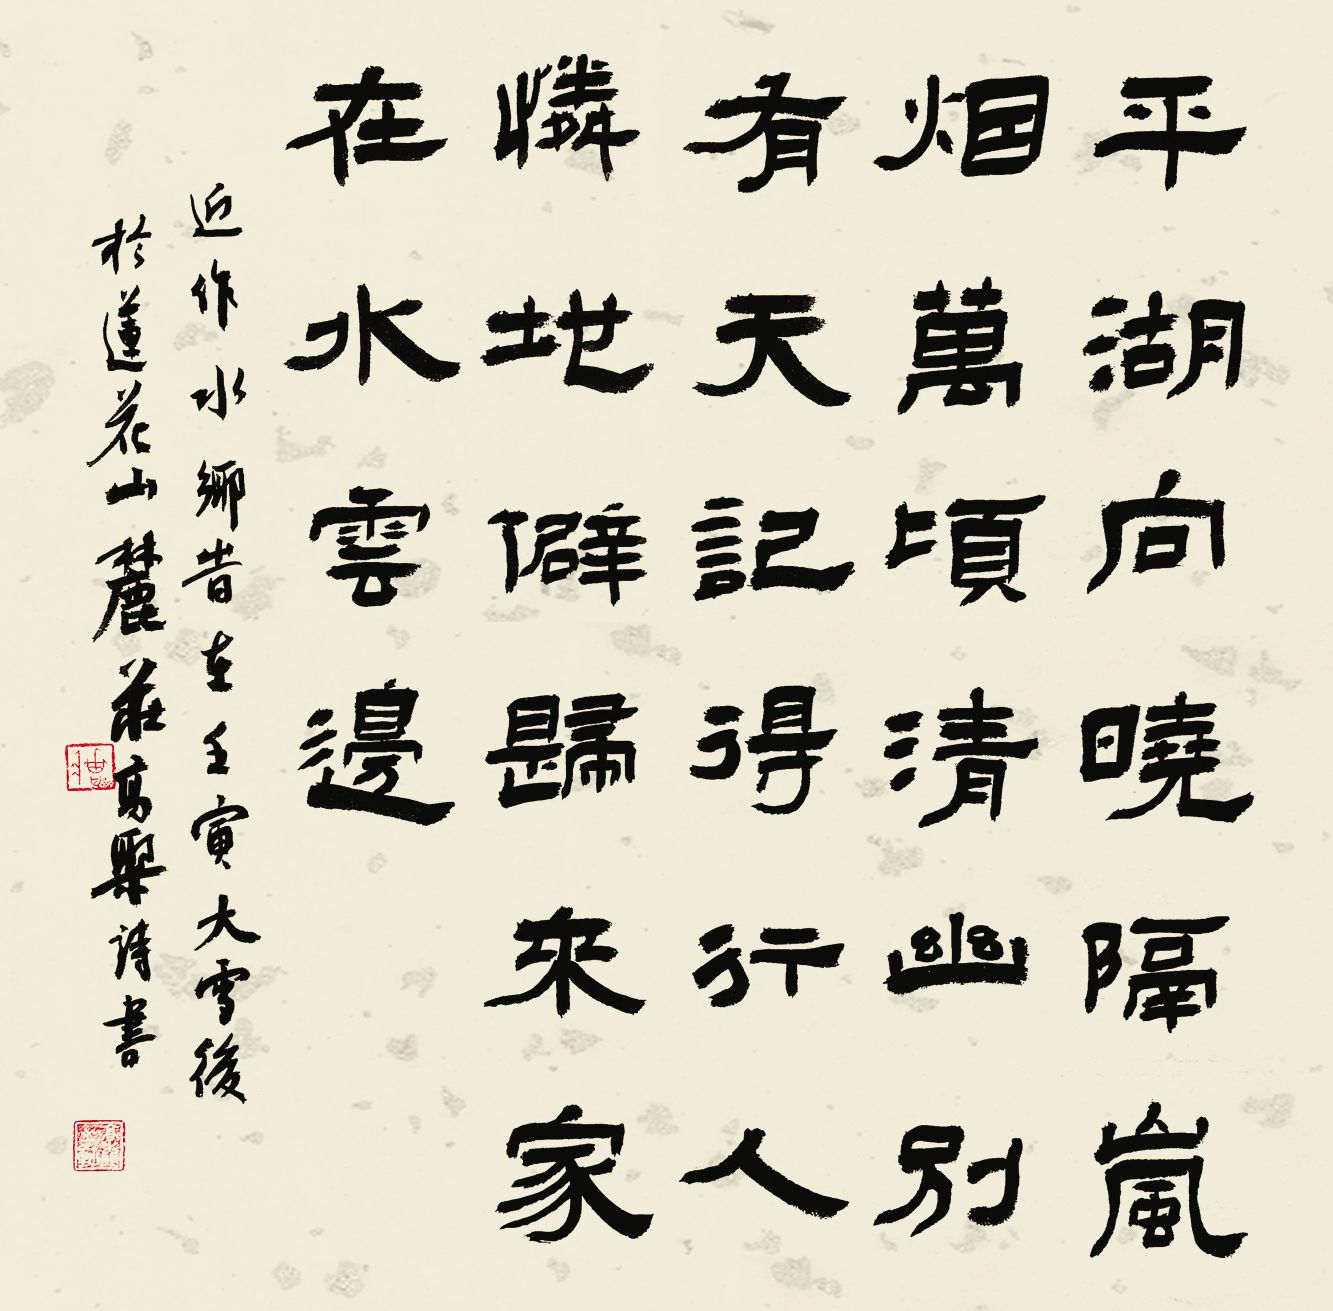 平湖向曉隔嵐
烟萬頃清幽別
有天記得行人
憐地僻歸來家
在水雲邊
近作水鄉昔在壬寅大雪後
於蓮花山麓莊高聚詩書